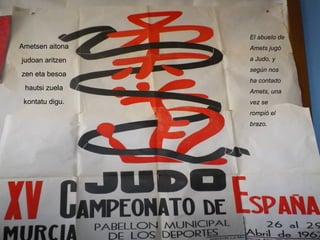 Ametsen aitona
judoan aritzen
zen eta besoa
hautsi zuela
kontatu digu.
El abuelo de
Amets jugó
a Judo, y
según nos
ha contado
Amets, una
vez se
rompió el
brazo.
JUDO
XV CAMPEONATO DE ESPAÑA
MURCIA
PABELLON MUNICIPAL
DE LOS DEPORTES
26 al 29
Abril de